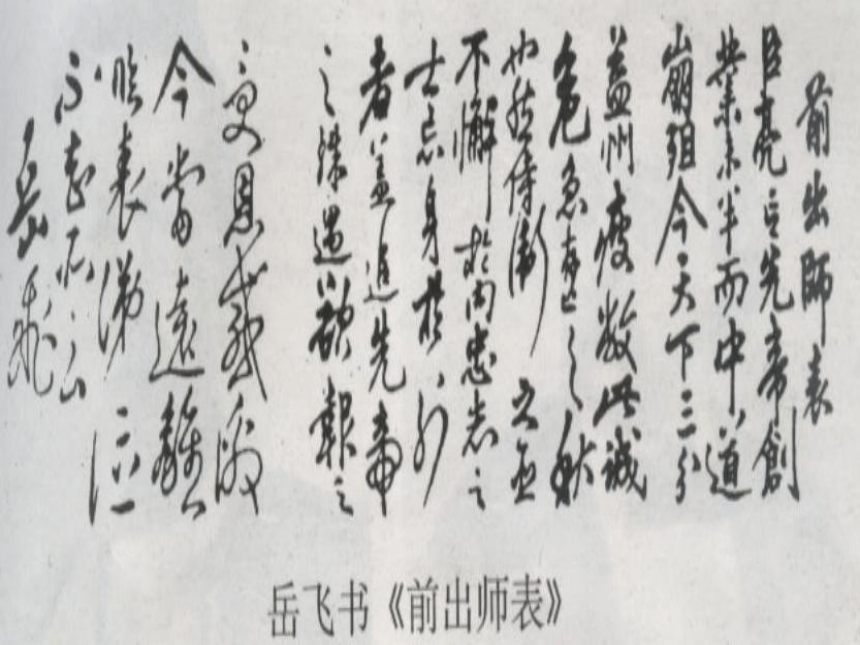 前出師表
臣亮言先帝創
業未半而中道
崩殂今天下三分
益州疲敝此誠
危急存亡之秋
也然侍衛之臣
不懈於内忠志之
士忘身於外
者蓋追先帝
之殊遇欲報之
受恩感激
今當遠離
臨表涕泣
不知所云
岳飛
岳飞书《前出师表》